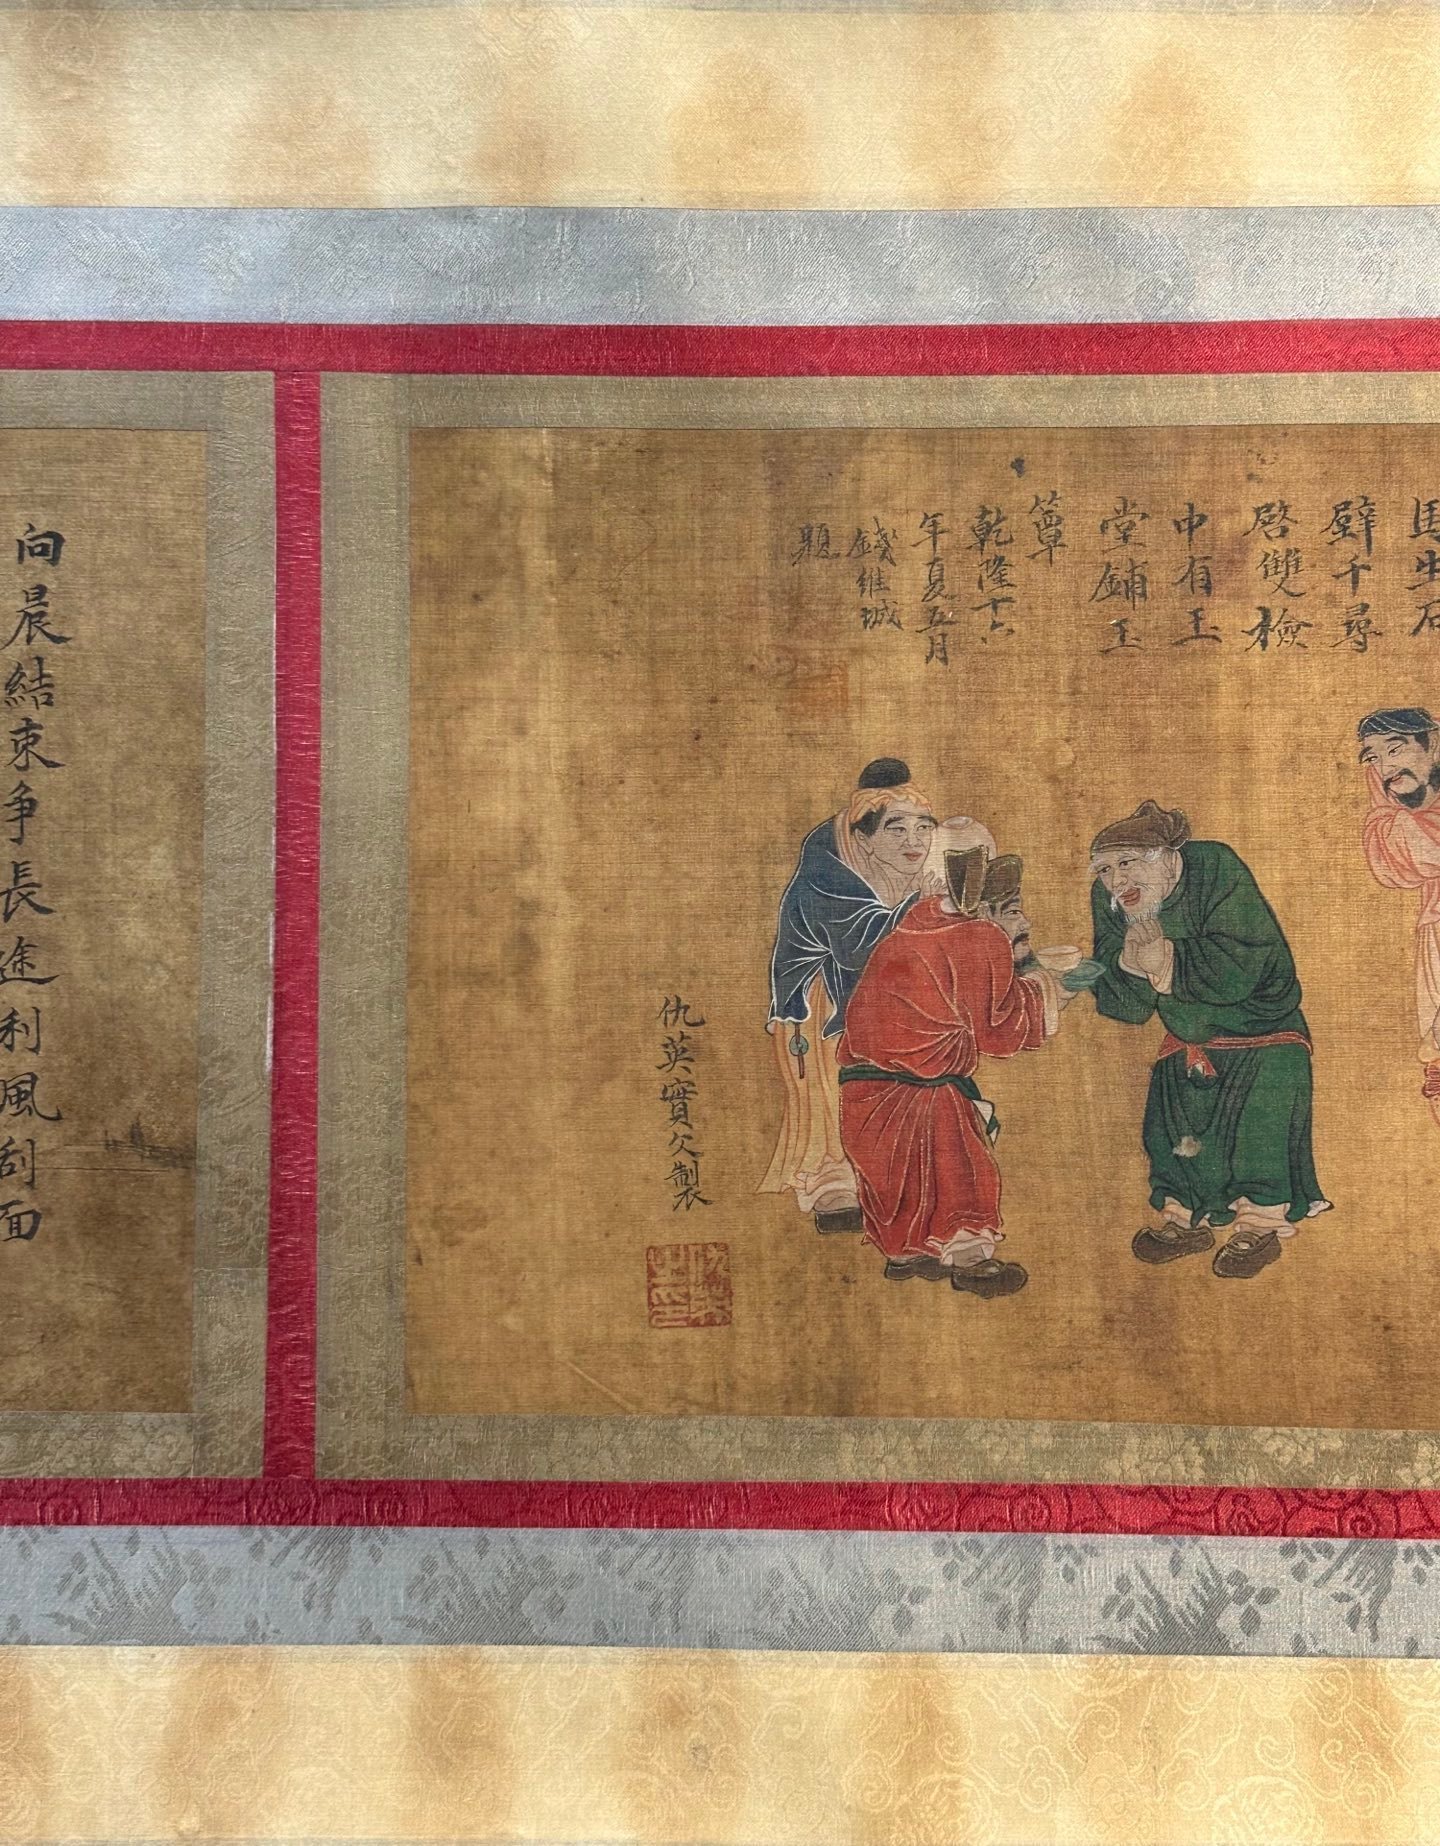 馬生石
壁千尋
啓雙檢
中有玉
堂鋪玉
簟
乾隆十六
年夏五月
錢維城
題
仇英實父製
向晨結束争長途利風刮面